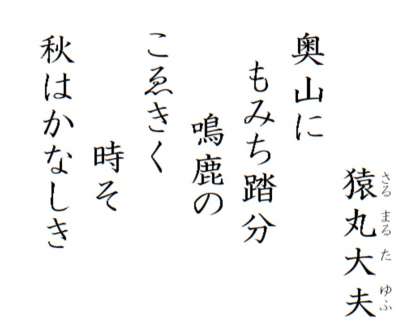 猿丸大夫
さるまるたゆふ
奥山に
もみち踏分
鳴鹿の
こゑきく
時そ
秋はかなしき